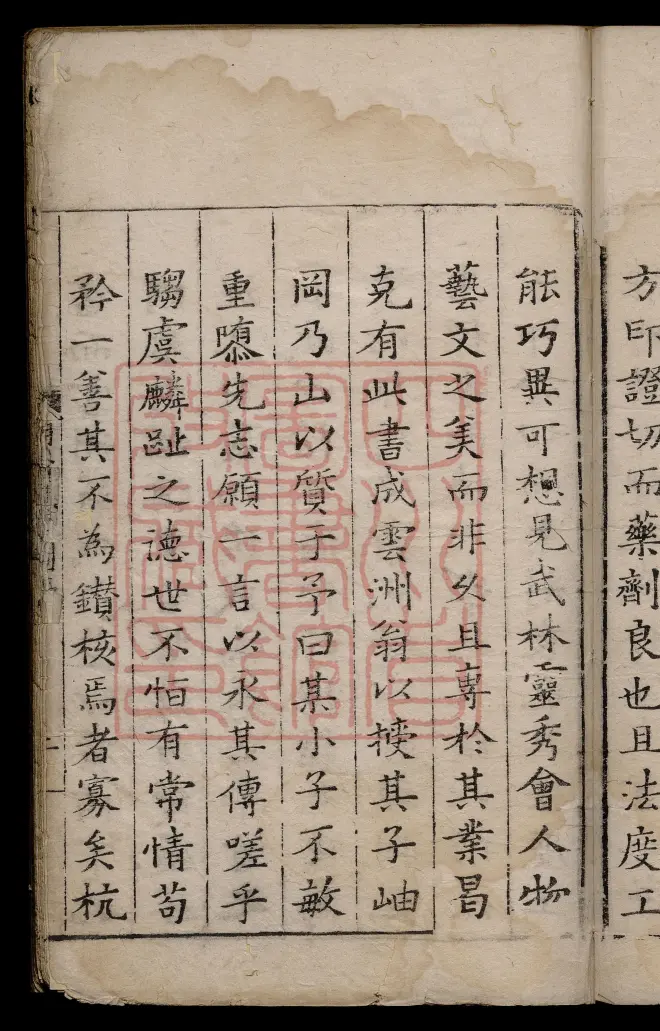 方印證切而藥劑良也且法度工
能巧異可想見武林靈秀會人物
藝文之美而非乆且專於其業曷
克有此書成雲洲翁以授其子岫
岡乃山以質于予曰某小子不敏
重墮先志願一言以永其傳嗟乎
騶虞麟趾之德世不恒有常情苟
矜一善其不為鑚核焉者寡矣杭